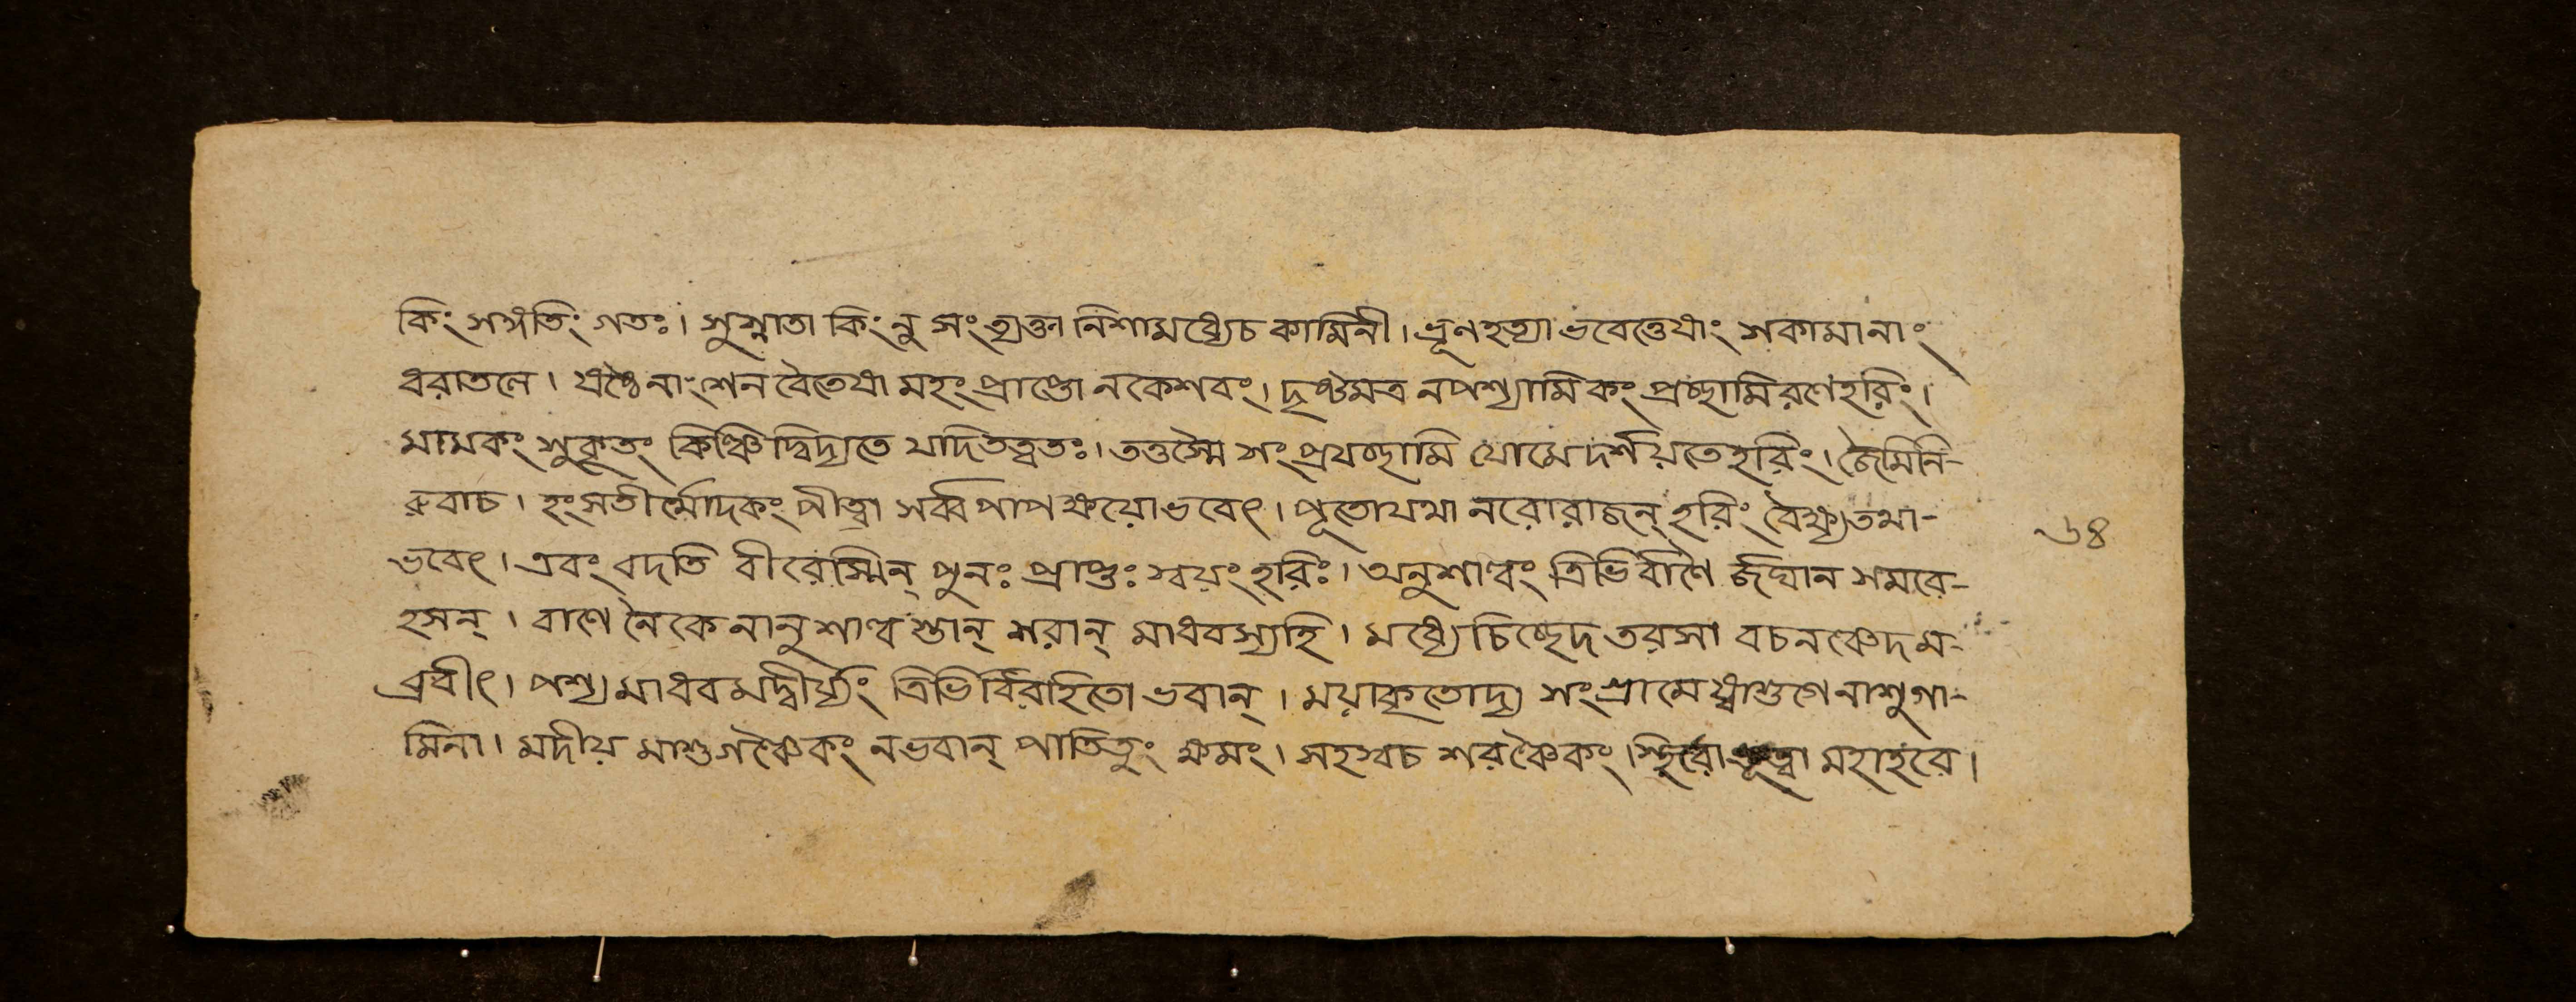 কিং সঙ্গতিং গতঃ। সুস্নাতা কিং নু সংত্যক্তা নিশামধ্যেচ কামিনী। ভ্রূণহত্যা ভবেত্তেষাং সকামানাং
ধরাতলে। নকেশবং। দৃষ্টমত্র নপশ্যামি কং প্রচ্ছামি রণেহরিং।
মামকং সুকৃতং কিঞ্চিদ্বিদ্যতে যদিতত্বতঃ। তত্তস্মৈ সংপ্রযচ্ছামি যোমেদর্শয়তেহরিং। জৈমিনি-
রুবাচ। হংসতীর্থোদকং পীত্বা সর্ব্বপাপক্ষয়োভবেৎ। পূতোযথা নরোরাজন্ হরিং তথা-
ভবেৎ। এবং বদতি বীরেস্মিন্ পুনঃ প্রাপ্তঃ স্বয়ং হরিঃ। অনুশাল্বং ত্রিভির্বাণৈ র্জঘান সমরে-
হসন্। বাণে নৈকে নানুশাল্ব স্তান্ শরান্ মাধবস্যহি। মধ্যেচিচ্ছেদ তরসা বচনঞ্চেদম-
ব্রবীৎ। পশ্য মাধব মদ্বীর্য্যং ত্রিভির্বিরহিতো ভবান্। ময়াকৃতোদ্য সংগ্রামে নাশুগা-
মিনা। মদীয় মাশুগঞ্চৈকং নভবান্ পাতিতুং ক্ষমং। সহস্বচ শরঞ্চৈকং। স্থিরো ভূত্বা মহাহবে।
৬৪